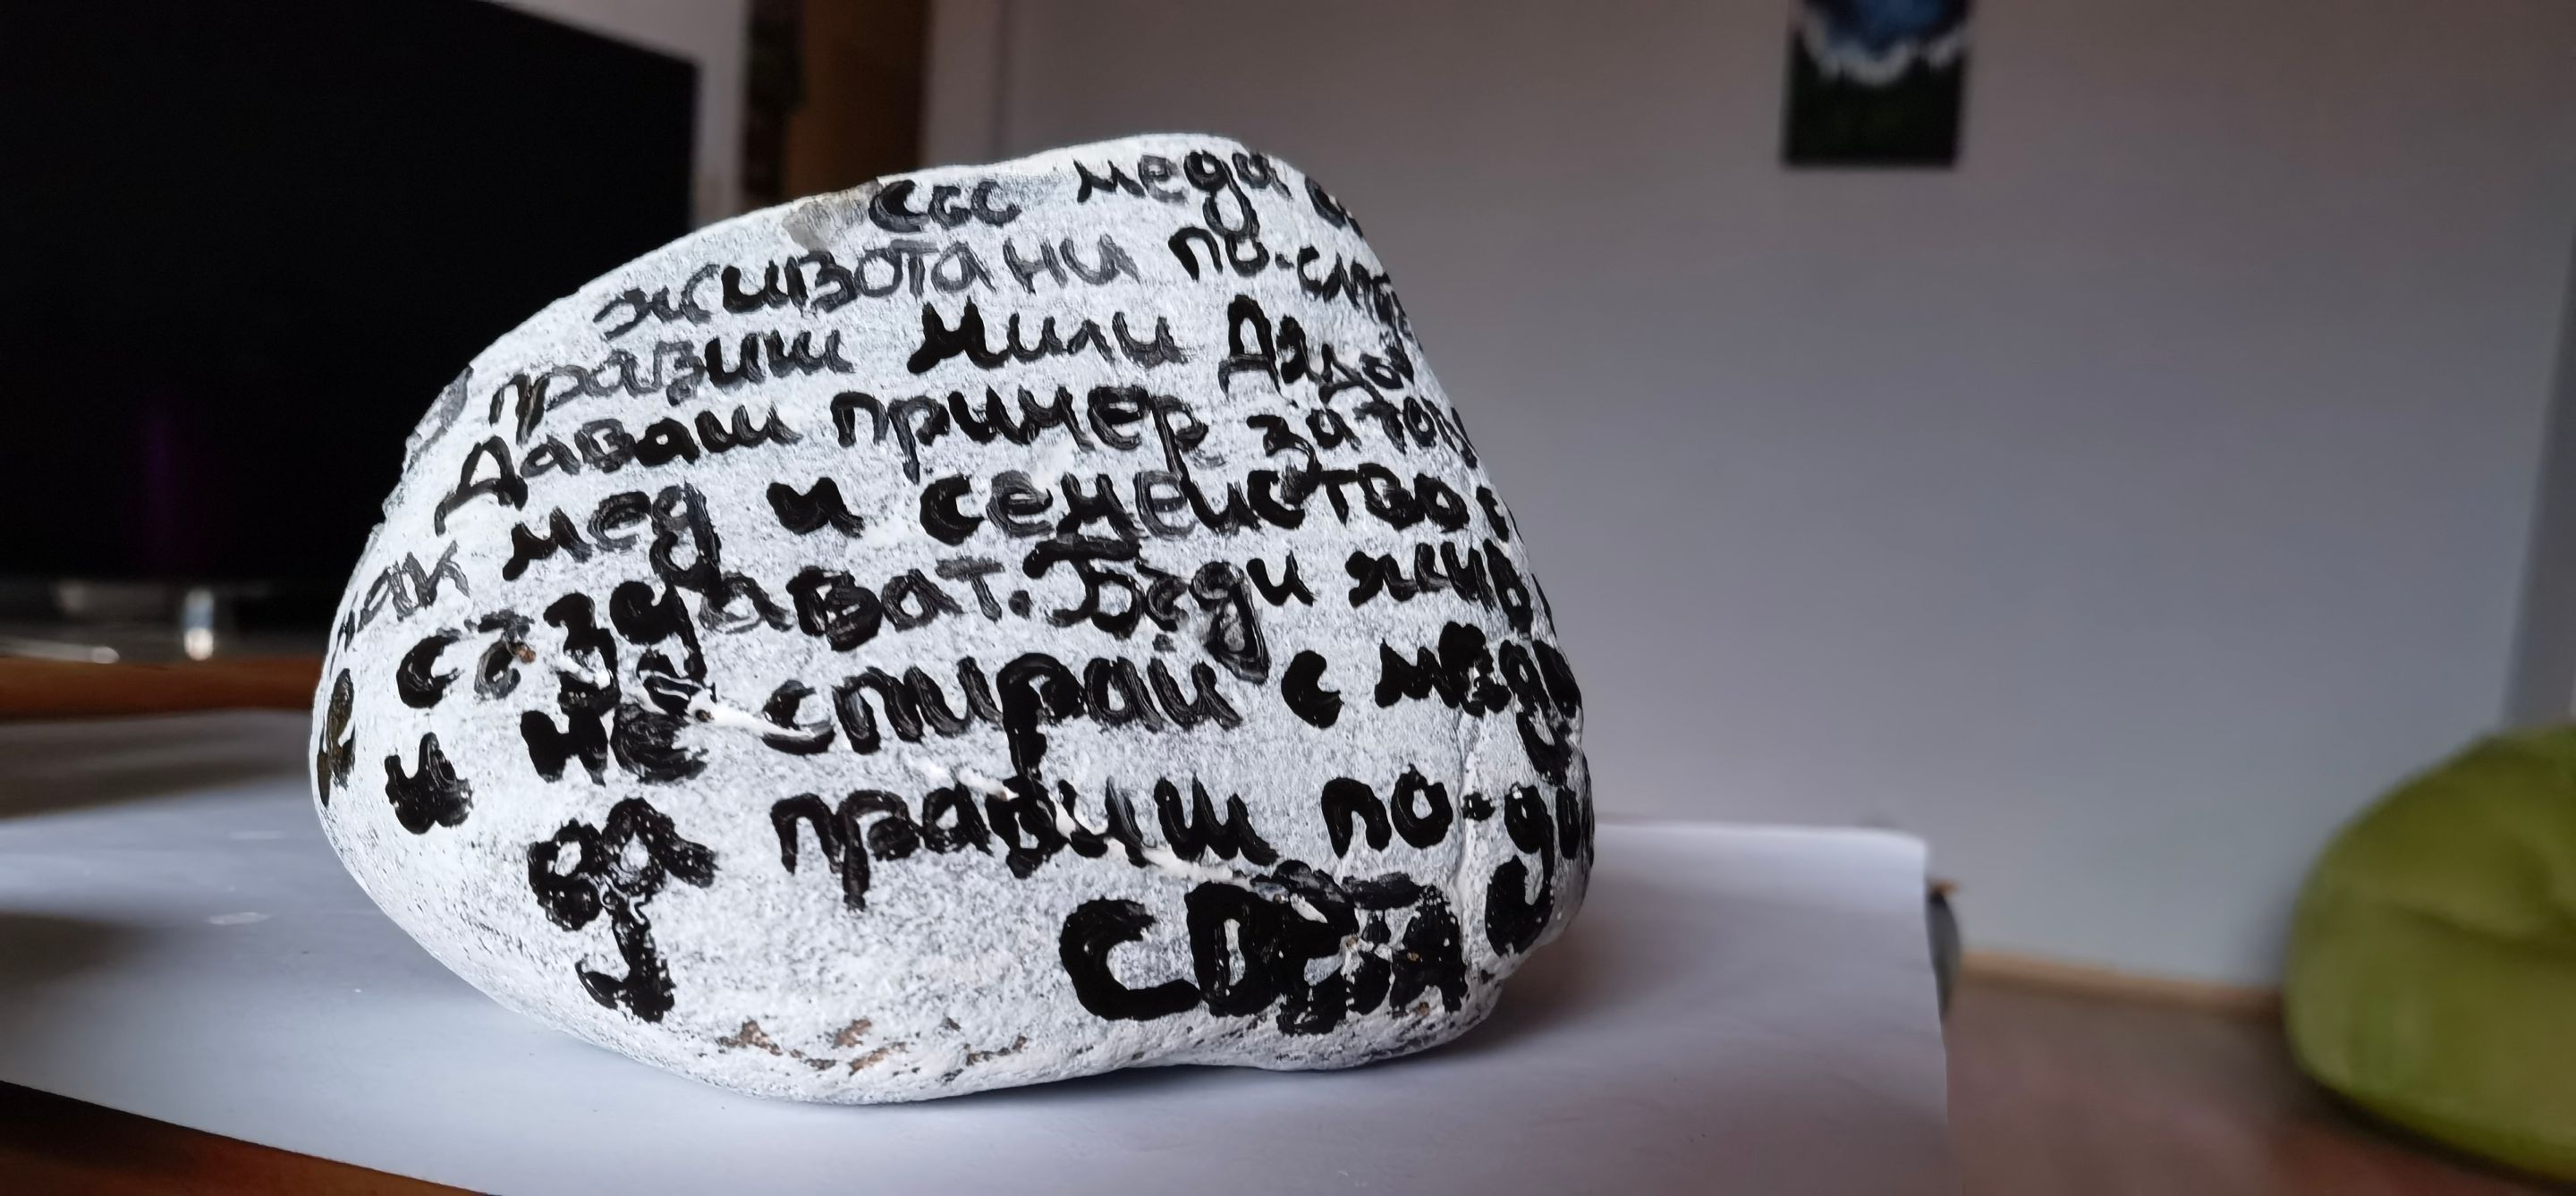 със меда с
живота ни по-слад
правиш мили дядо
Даваш пример за тов
как мед и семейство с
създават. Бъди жив
и не спирай с меда
да правиш по-до
света